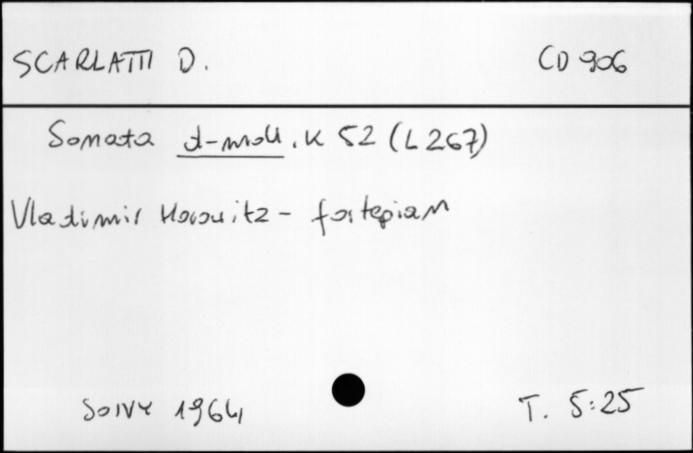 SCARLATTI D. CD 906
Sonata d-moll. K 52 (L 267)
Vladimir Horowitz - fortepian
SONY 1964
T. 5:25